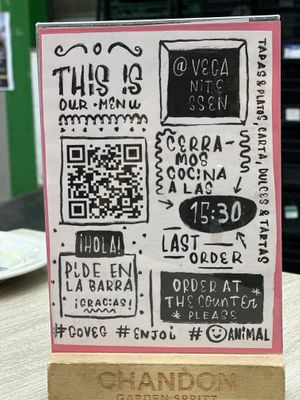 THIS IS
OUR · MENU
@VEGA
NITE
SSEN
TAPAS & PLATOS, CARTA, DULCES & TARTAS
CERRA-
MOS
COCINA
A LAS
15:30
LAST
ORDER
¡HOLA!
PIDE EN
LA BARRA
¡GRACIAS!
ORDER AT
THE COUNTER
PLEASE
#GOVEG #ENJOI #ANIMAL
CHANDON
GARDEN SPRITZ